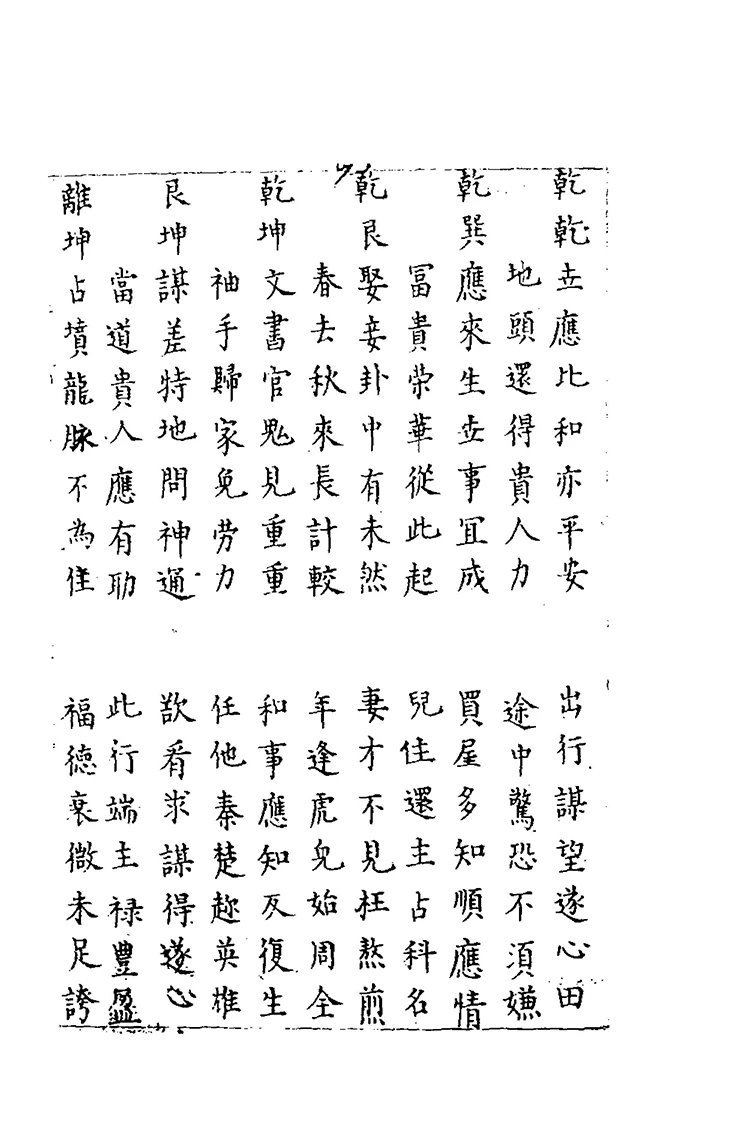 乾乾世應比和亦平安　出行謀望遂心田
地頭還得貴人力　途中驚恐不須嫌
乾巽應來生世事冝成　買屋多知順應情
冨貴荣華從此起　兒住還主占科名
乾艮娶妾卦中有未然　妻才不見枉熬煎
春去秋來長計較　年逢虎兔始周全
乾坤文書官鬼見重重　和事應知反復生
袖手歸家免劳力　任他秦楚趂英雄
艮坤謀差特地問神通　欲看求謀得遂心
當道貴人應有助　此行端主禄豐盈
離坤占墳龍脉不為佳　福德衰微未足誇